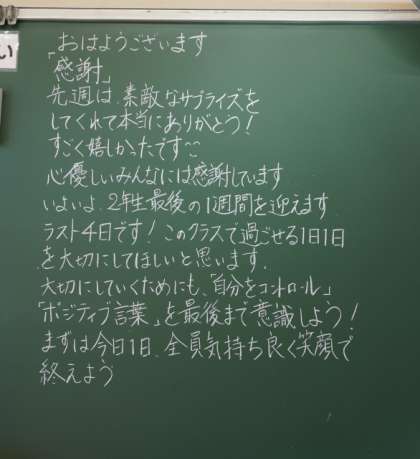 い
おはようございます
「感謝」
先週は、素敵なサプライズを
してくれて本当にありがとう!
すごく嬉しかったです
心優しいみんなには感謝しています
いよいよ、2年生最後の1週間を迎えます
ラスト4日です!このクラスで過ごせる1日1日
を大切にしてほしいと思います。
大切にしていくためにも、「自分をコントロール」
「ポジティブ言葉」を最後まで意識しよう!
まずは今日1日、全員気持ち良く笑顔で
終えよう